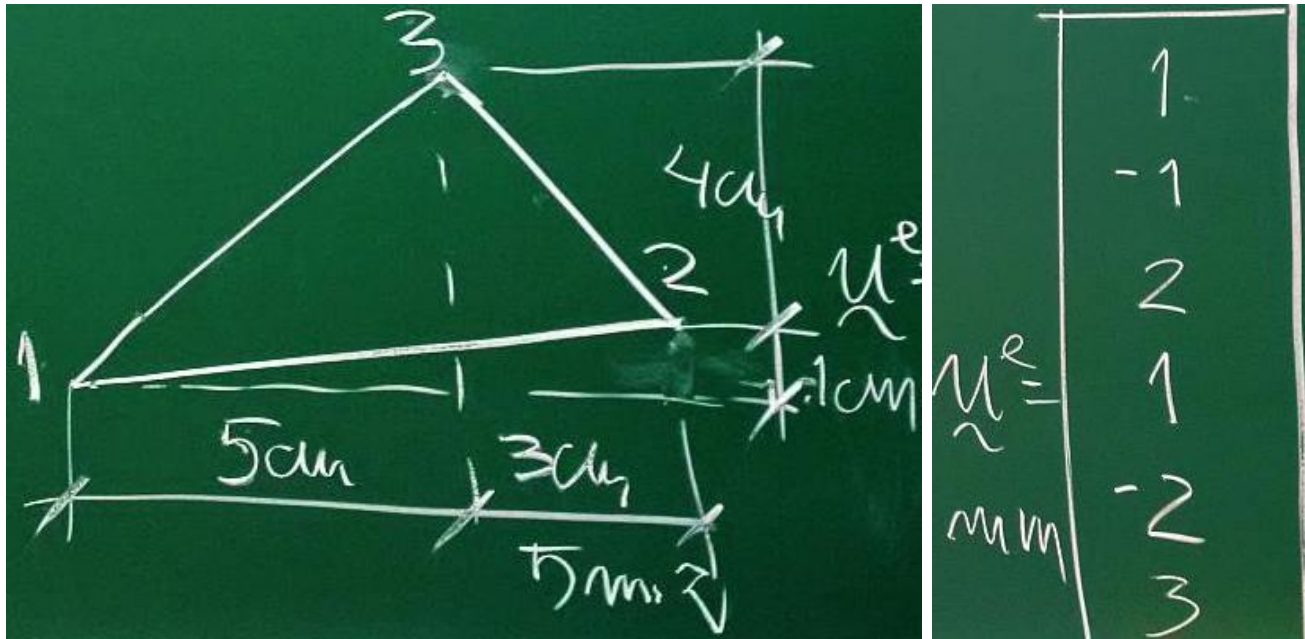 3
4cm
2
u^e=
1
1cm
5cm
3cm
1
-1
2
u^e=
1
-2
mm
3